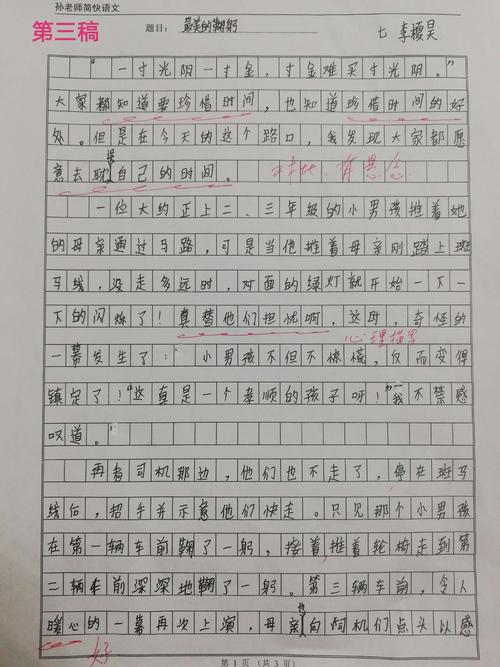 孙老师简快语文
第三稿
题目：最美的鞠躬
七 李稷昊
"一寸光阴一寸金，寸金难买寸光阴。"
大家都知道要珍惜时间，也知道珍惜时间的好
处。但是在今天的这个路口，我发现大家都愿
意去耽自己的时间。
有悬念
一位大约正上二、三年级的小男孩推着她
的母亲通过马路，可是当他推着母亲刚踏上斑
马线，没走多远时，对面的绿灯就开始一下一
下的闪烁了！真替他们担忧啊，这时，奇怪的
心理描写
一幕发生了：小男孩不但不惊慌，反而变得
镇定了！"这真是一个孝顺的孩子呀！"我不禁感
叹道。
再看司机那边，他们也不走了，停在斑马
线后，招手并示意他们快走。只见那个小男孩
在第一辆车前鞠了一躬，接着，推着轮椅走到第
二辆车前深深地鞠了一躬。第三辆车前，令人
暖心的一幕再次上演，母亲向司机们点头以感
好
第 1 页（共 3 页）